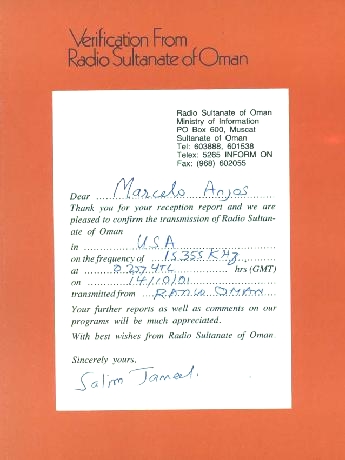 Verification From
Radio Sultanate of Oman
Radio Sultanate of Oman
Ministry of Information
PO Box 600, Muscat
Sultanate of Oman
Tel: 603888, 601538
Telex: 5265 INFORM ON
Fax: (968) 602055
Dear Marcelo Anjos
Thank you for your reception report and we are
pleased to confirm the transmission of Radio Sultan-
ate of Oman
in USA
on the frequency of 15355 KHz
at hrs (GMT)
on 14/10/01
transmitted from RADIO OMAN
Your further reports as well as comments on our
programs will be much appreciated.
With best wishes from Radio Sultanate of Oman
Sincerely yours,
Salim